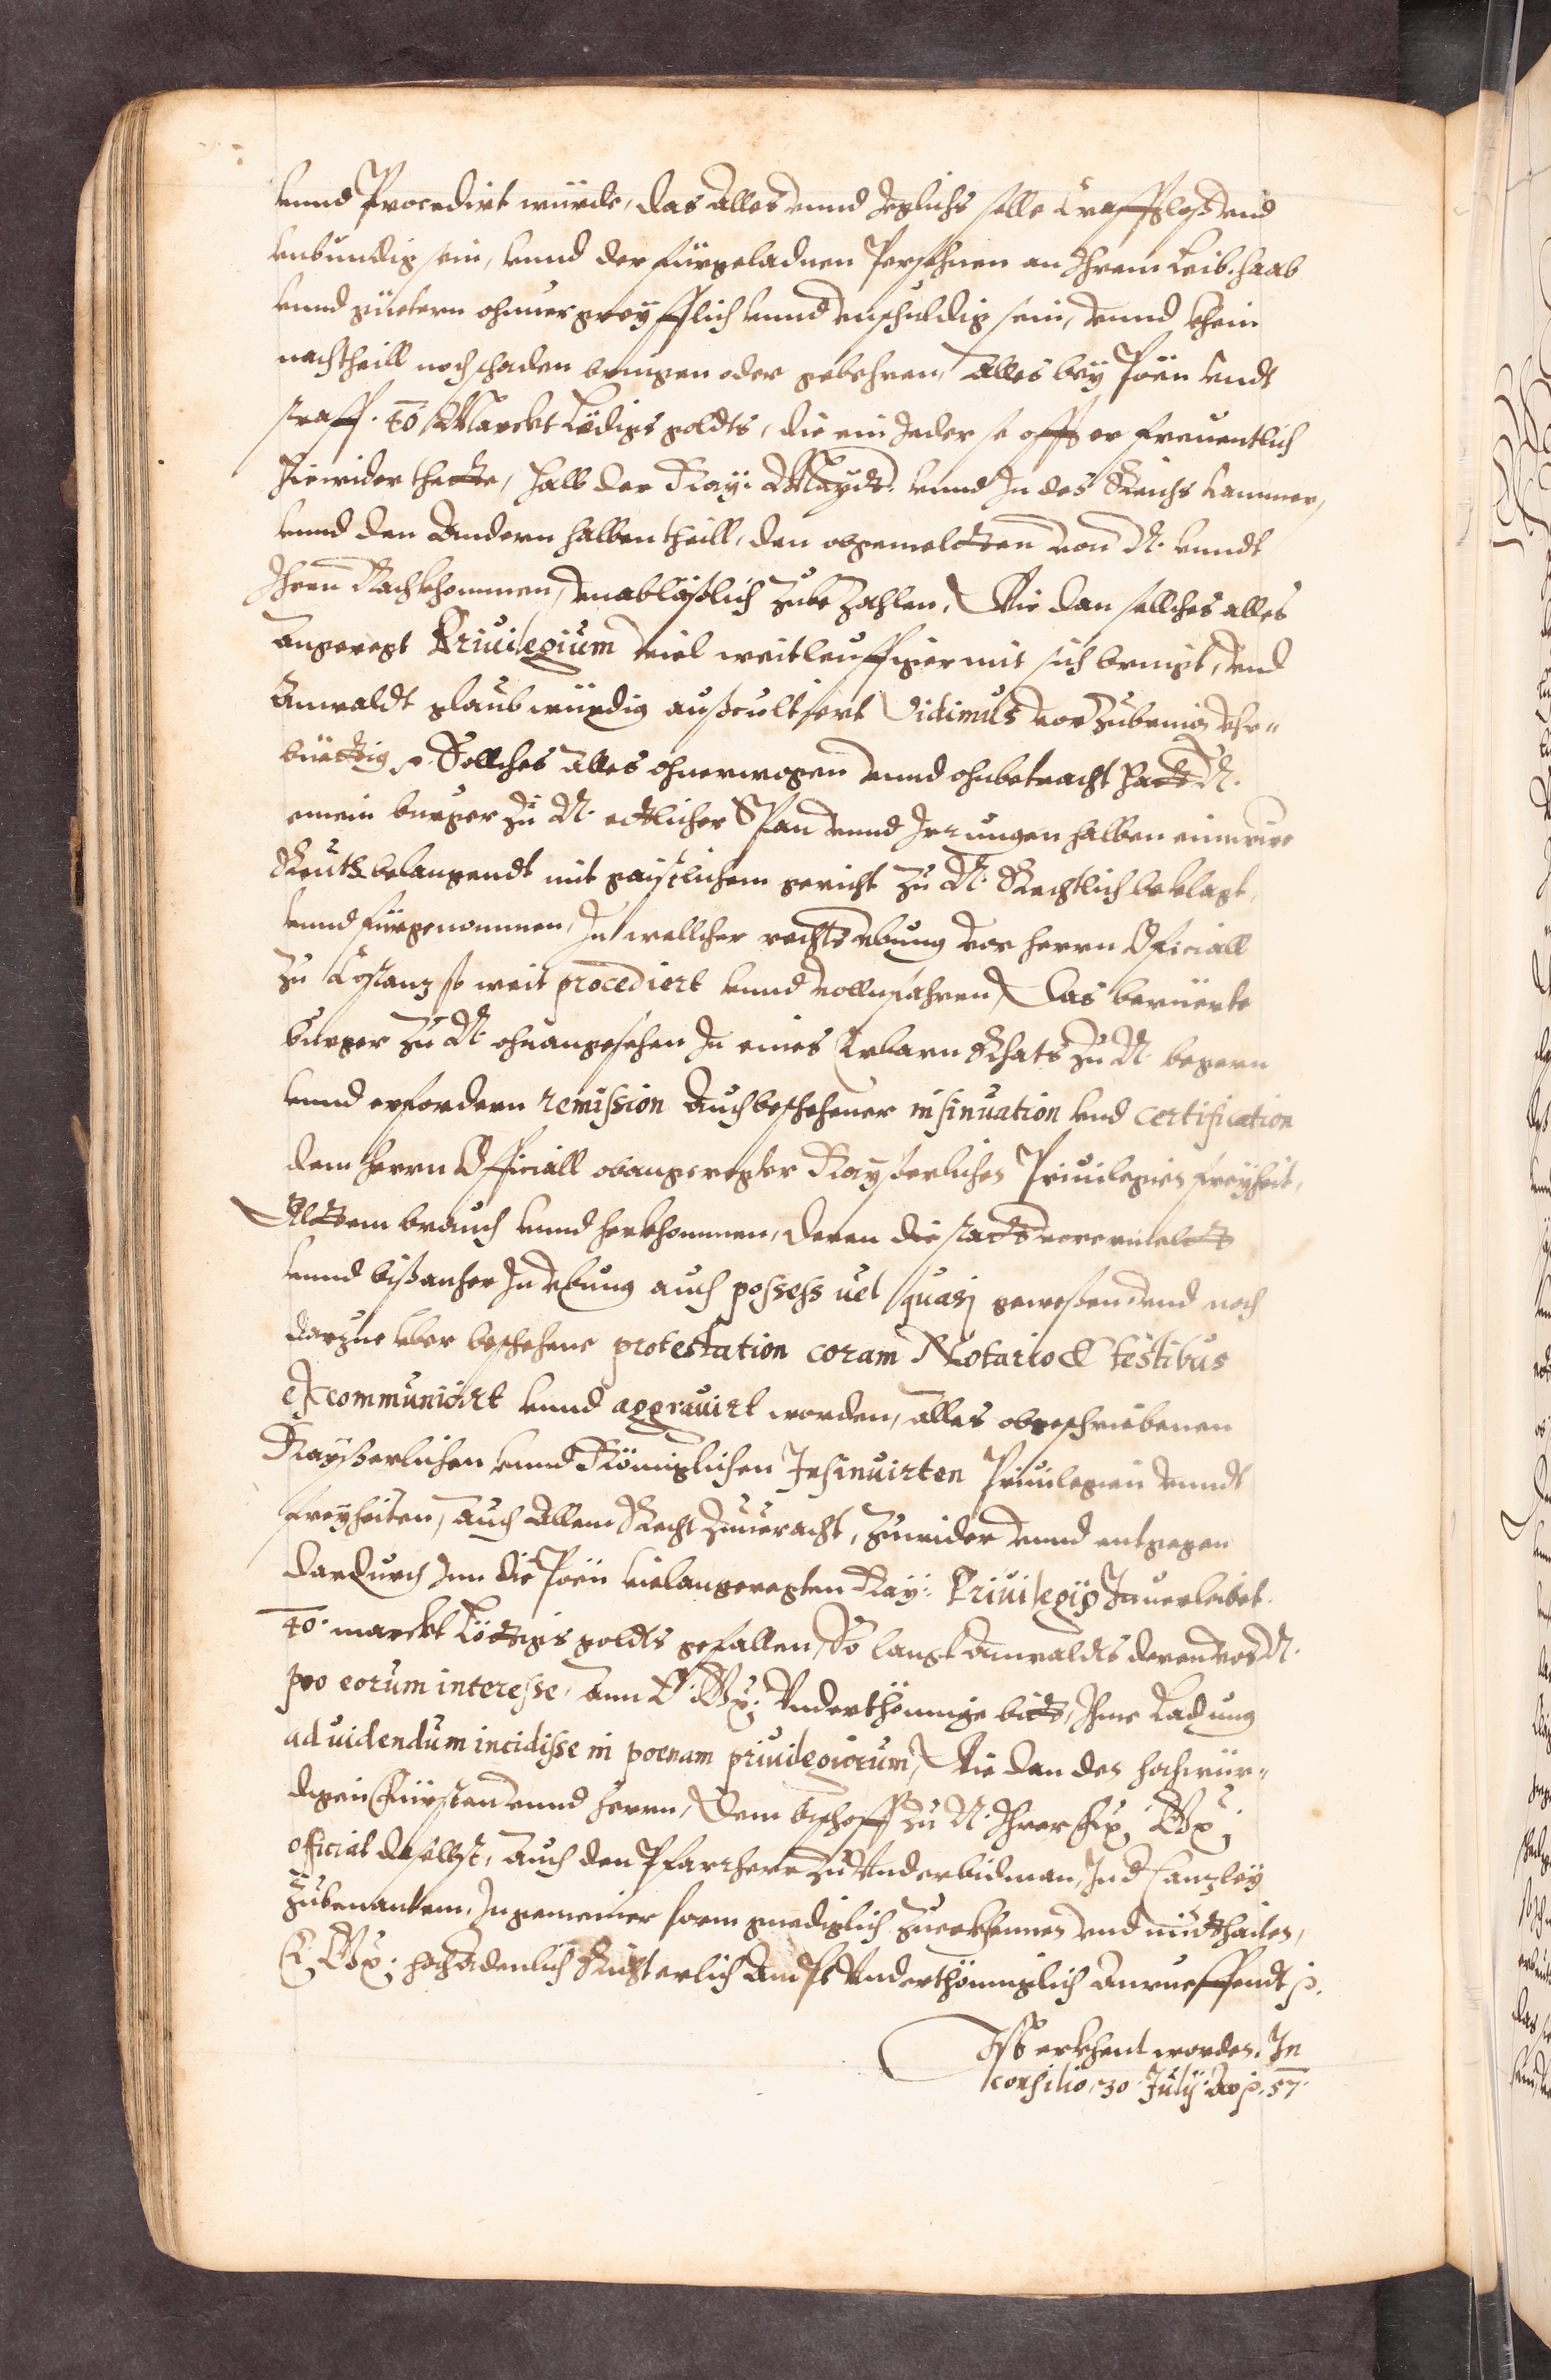 vnnd Procedirt würde, das Alles vnnd Jeglichs solle Crafftloß vnd
vnbündig sein, vnnd der fürgeladnen Persohnen an Ihrem Leib, haab
vnnd güetern ohnuergreyfflich vnnd vnschuldig sein, vnnd khein
nachtheill noch schaden bringen oder gebehren, Alles bey Pöen vndt
straff. 40 Marckt Lödigs goldts, die ein Jeder so offt er freuentlich
hierwider thette, halb der Kay: Mayt. vnnd In des Reichs Cammer,
vnnd den Andern halben theill, den obgemeltten von N. vnndt
Ihren Nachkhommen, vnabläßlich zube Zahlen, Wie dan sollches alles
angeregt Priuilegium viel weitleuffiger mit sich bringt, vnd
Anwaldt glaubwürdig außcultsert Vidimus vor zubring vhr-
büettig p. Sollches Alles ohnerwogen vnnd ohnbetracht hatt N.
einem burger zu N. ettlicher Span vnnd Irrungen halben einer
Reuth belangendt mit geistlichem gericht zu N. Rechtlich beklagt,
vnnd fürgenommen, In wellcher rechts vbung vor herrn Oficiall
zu Costanz so weit procediert vnnd vollnfahren, Das berüerte
burger zu N. ohnangesehen In eines Erbarn Rhats zu N. begern
vnnd erfordern remission Auch beschehener insinuation vnd certification
dem herrn Officiall obangeregter Kayserlicher Priuilegien freyheit,
Alttem brauch vnnd herkhommen, deren die statt vorermelts
vnnd bißanher In vbung auch possess uel quasj geweßen, vnd noch
darzue vber beschehene protestation coram Notario et testibus
excommuniciert vnnd aggrauirt worden, Alles obgeschriebenen
Kayßerlichen vnnd Königlichen Insinuirten Priuilegien vnndt
freyheiten, Auch Allem Recht Zuueracht, zuwider vnnd entgegen
dardurch Inn die Pöen vielangeregten Kay: Priuilegijs Inuerleibet.
40. marckt Löttigs goldts gefallen, So langt Anwaldts deren von N.
pro eorum interesse, Ann E: Gn: Vnderthönnige bitt, Ihme Ladung
ad uidendum incidisse in poenam priuilegiorum, Wie dan des hochwür-
digen Fürsten vnnd herrn, Dem bischoff zu N. Ihrer fr: Gn:
official daselbst, Auch den Pfarrherr zu Underbidman, In d Canzley
zubenantem. In gemeiner form gnediglich zuerkhennen vnd mitthailen,
E: Gn: hochAdenlich Richterlich Ampt Vnderthönniglich Anrueffendt p.
Ist erkhent worden, In
consilio, 30. Julij. Ao p. 57.